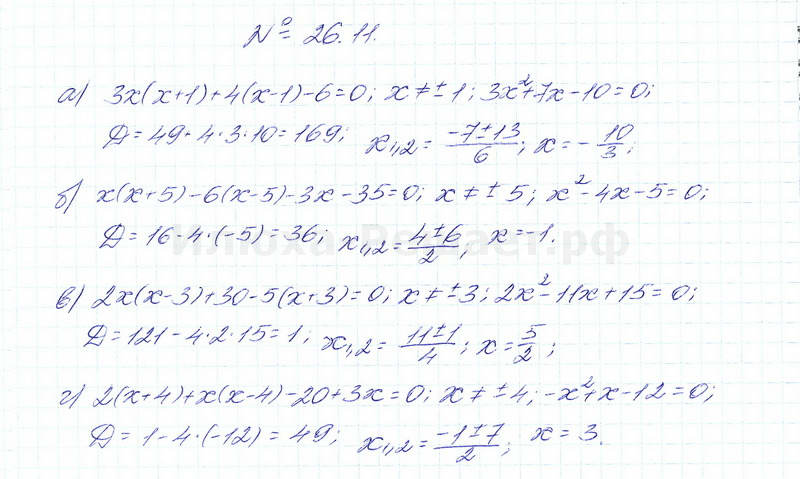 № 26.11.
а) 3x(x+1)+4(x-1)-6=0; x≠±1; 3x²+7x-10=0;
Д=49+4·3·10=169; x₁,₂=(-7±13)/6; x=-10/3;
б) x(x+5)-6(x-5)-3x-35=0; x≠±5; x²-4x-5=0;
Д=16-4·(-5)=36; x₁,₂=(4±6)/2, x=-1.
Илюха-Решает.рф
в) 2x(x-3)+30-5(x+3)=0; x≠±3; 2x²-11x+15=0;
Д=121-4·2·15=1; x₁,₂=(11±1)/4; x=5/2;
г) 2(x+4)+x(x-4)-20+3x=0; x≠±4; -x²+x-12=0;
Д=1-4·(-12)=49; x₁,₂=(-1±7)/2; x=3.